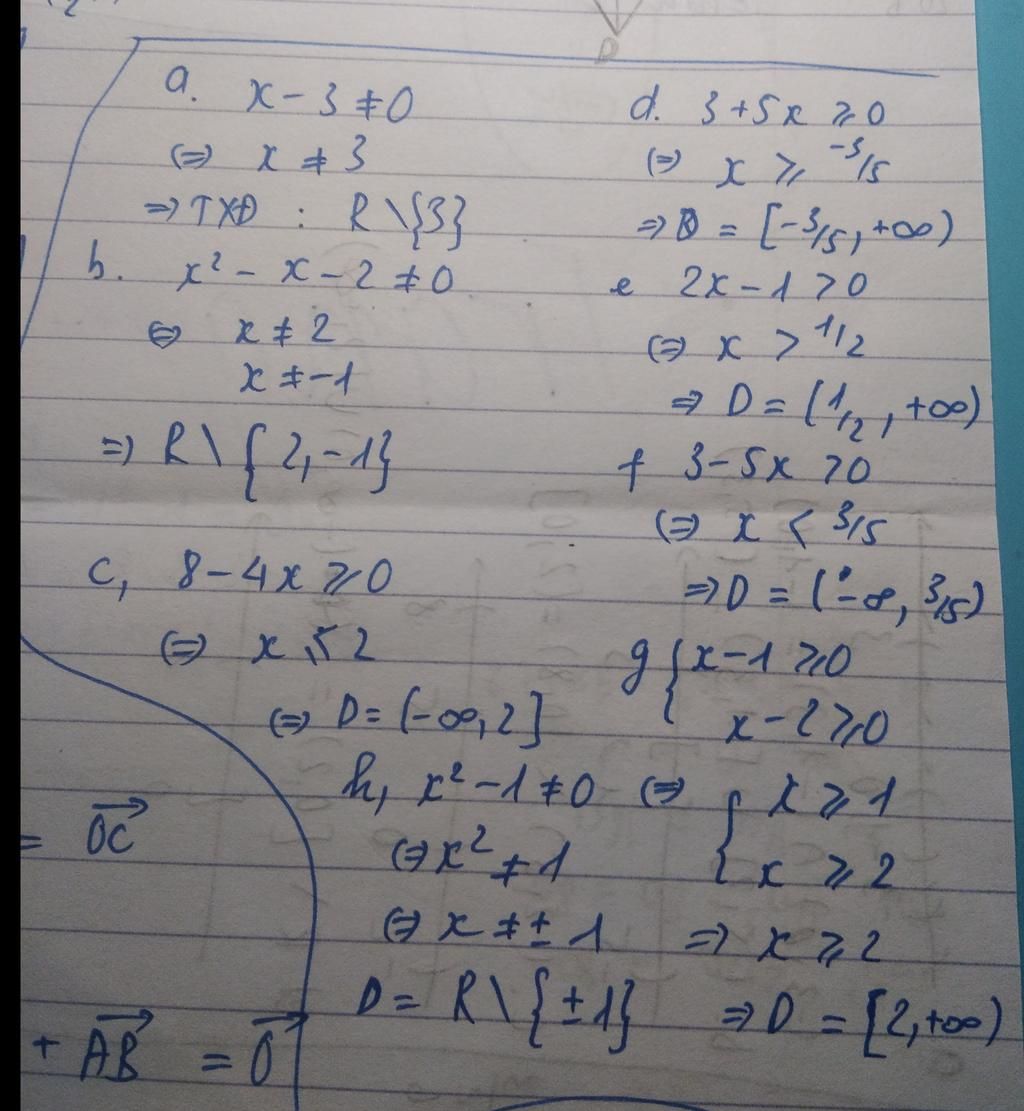 a. x - 3 ≠ 0
(=) x ≠ 3
=> TXĐ : R \ {3}
b. x² - x - 2 ≠ 0
(=) x ≠ 2
x ≠ -1
=> R \ {2, -1}
c, 8 - 4x ⩾ 0
(=) x ⩽ 2
(=) D = (-∞, 2]
d. 3 + 5x ⩾ 0
(=) x ⩾ -3/5
=> D = [-3/5, +∞)
e 2x - 1 > 0
(=) x > 1/2
=> D = (1/2, +∞)
f 3 - 5x > 0
(=) x < 3/5
=> D = (-∞, 3/5)
g { x - 1 ⩾ 0
x - 2 ⩾ 0
(=) { x ⩾ 1
x ⩾ 2
=> x ⩾ 2
=> D = [2, +∞)
h, x² - 1 ≠ 0
(=) x² ≠ 1
(=) x ≠ ± 1
D = R \ {± 1}
= \overrightarrow{OC}
+ \overrightarrow{AB} = \overrightarrow{0}
D